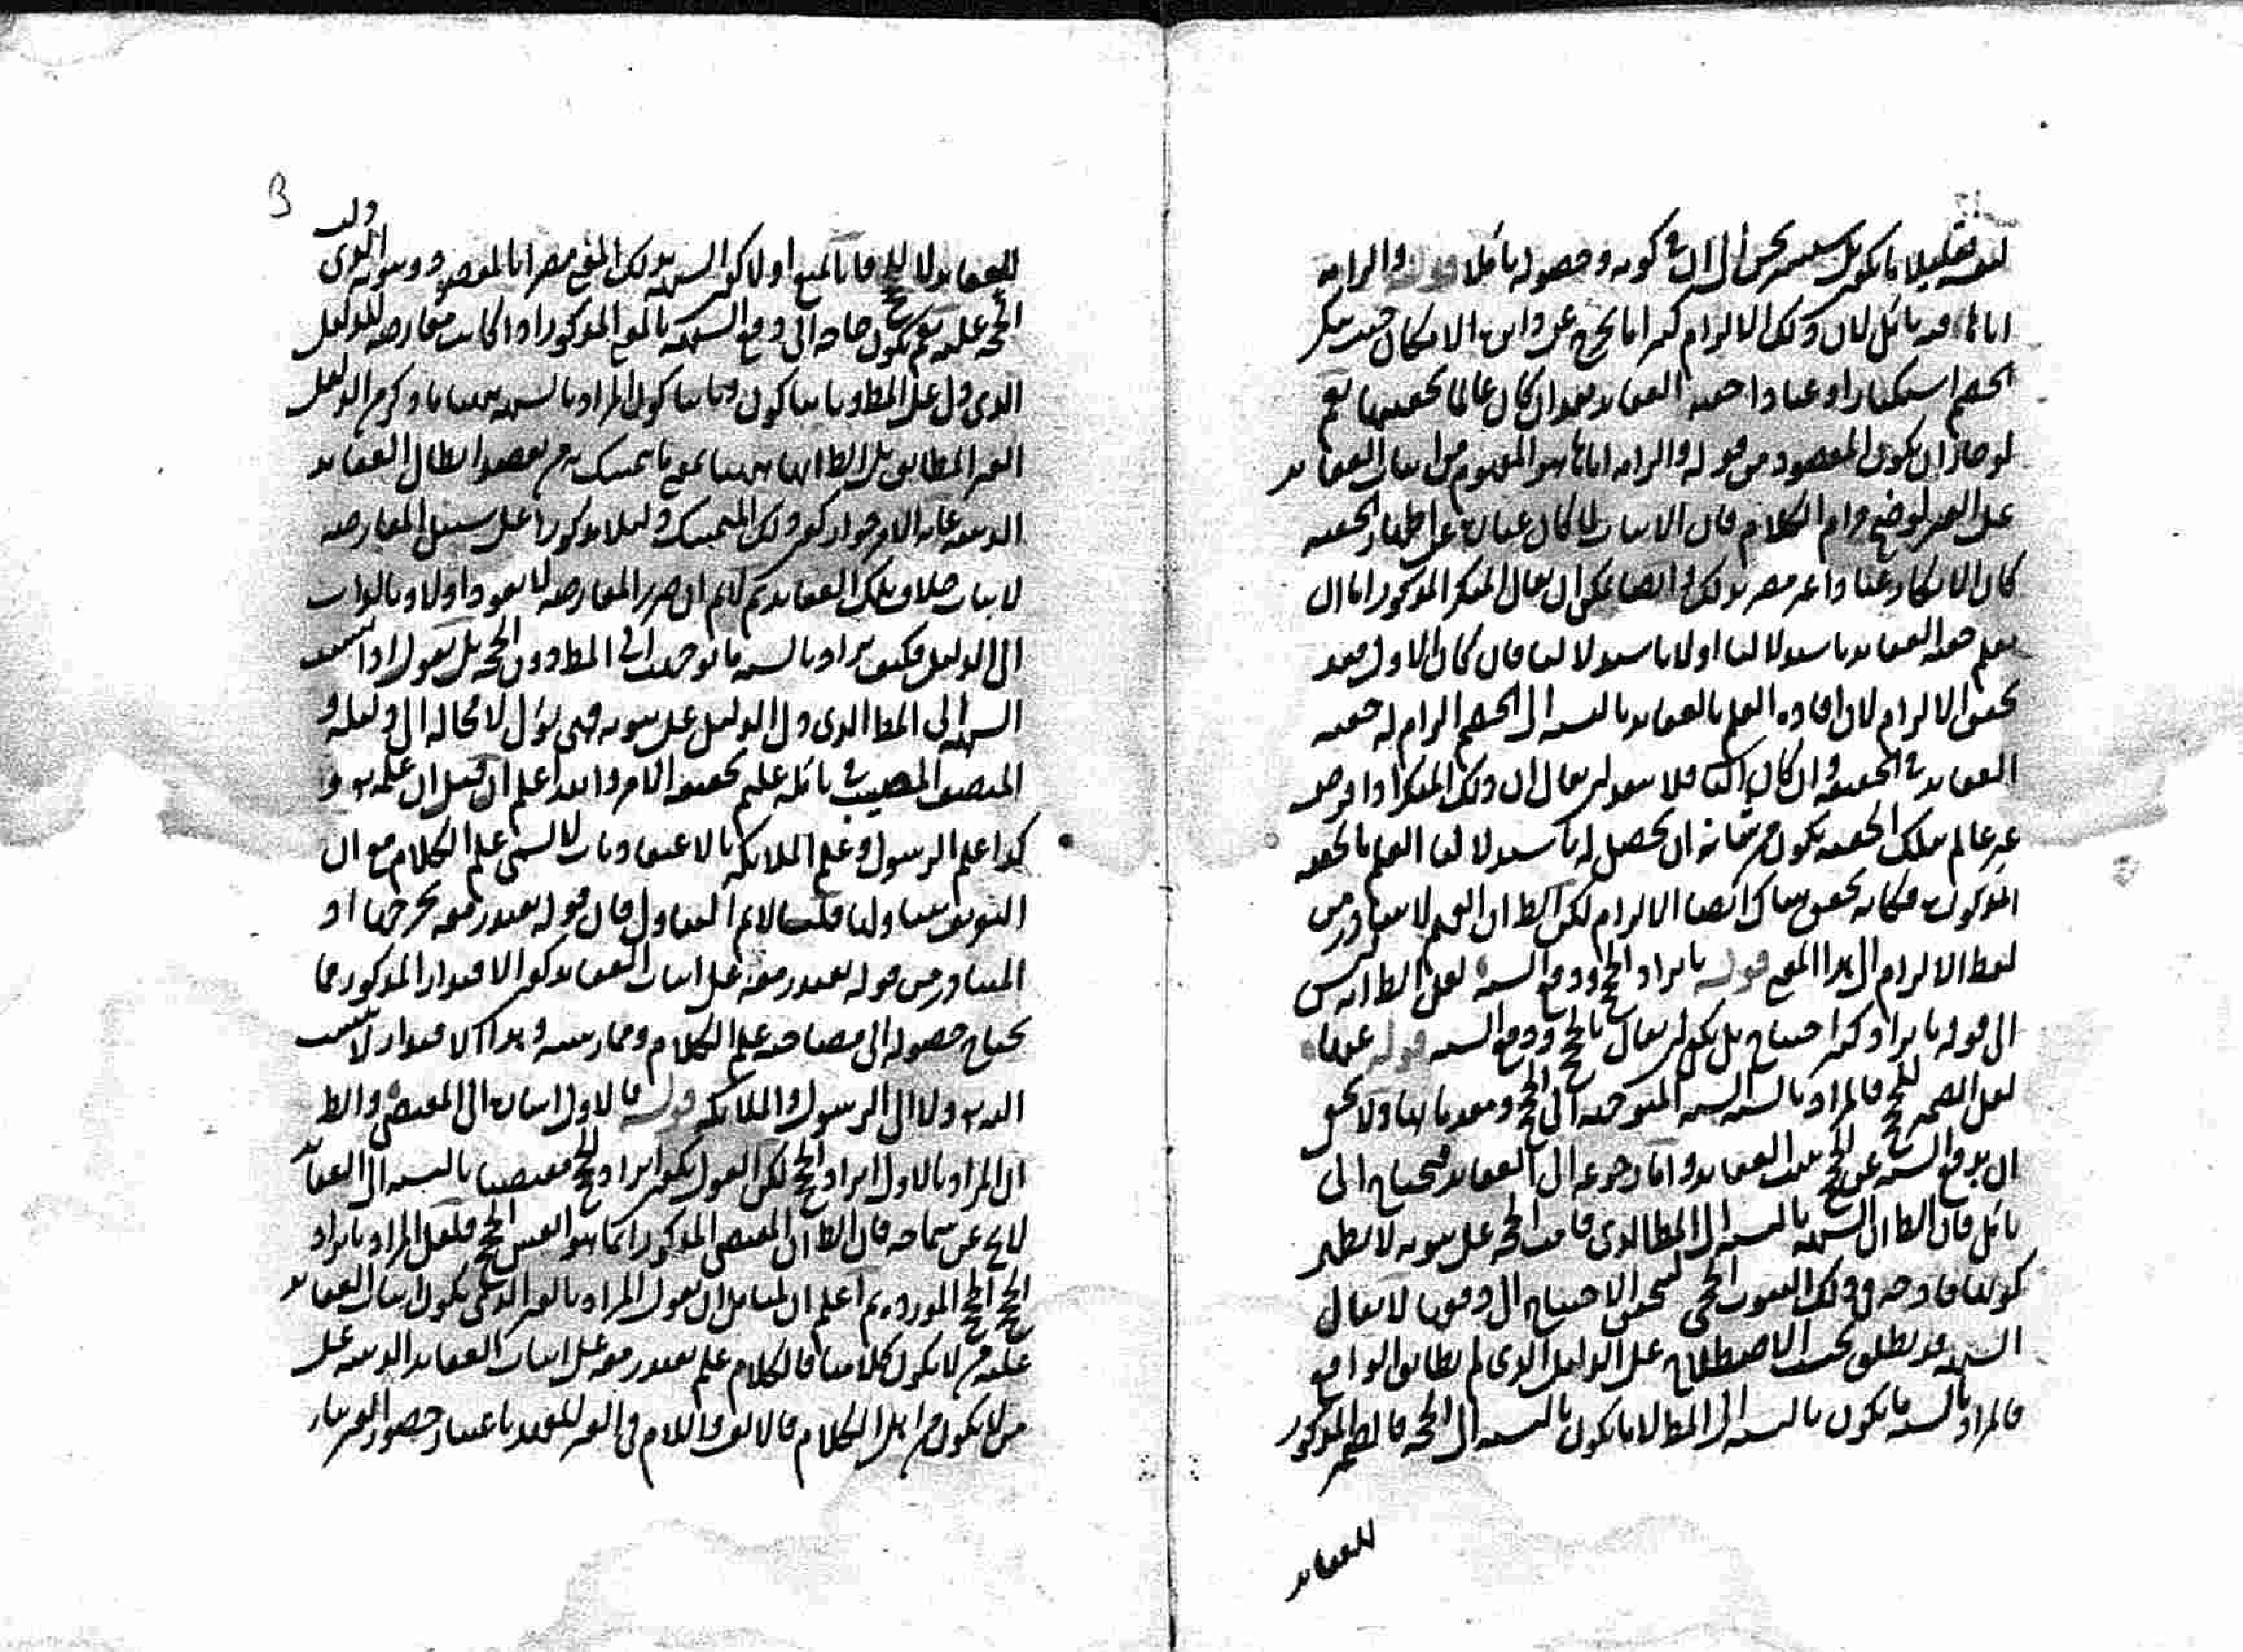 اياها فيه تأمل لان ذلك الالزام كما لا يخرج عن دائرة الامكان حيث ينكر
الخصم استكبارا وعنادا حقية العقائد بعد ان كان عالما بحقيتها نعم
لو جاز ان يكون المقصود من قوله والزامه اياها هو المفهوم من اثبات العقائد
على الغير لوضح مرام الكلام فان الاثبات لما كان عبارة عن اظهار الحقية
كان الانكار عنادا غير مضر بذلك وايضا يمكن ان يقال المنكر المذكور اما ان
يعلم حقية العقائد باستدلالنا اولا باستدلالنا فان كان الاول فقد
تحقق الالزام لان افادة العلم بالعقائد بالنسبة الى الخصم الزام له حقية
العقائد في الحقيقة وان كان الثاني فلا يبعد ان يقال ان ذلك المنكر اذا فرض
غير عالم بتلك الحقية يكون من شانه ان يحصل له باستدلالنا العلم بالحقية
المذكورة فكانه تحقق هناك ايضا الالزام لكن الظ ان الفهم لا يتبادر من
لفظ الالزام الى هذا المعنى قوله بايراد الحجج ودفع الشبه لعل الظ انه ليس
الى قوله بايراد كثير احتياج بل يكفي ان يقال بالحجج ودفع الشبه قوله عنها
لعل الضمير للحجج فالمراد بالشبه الشبه المتوجهة الى الحجج ومقدماتها ولا يخفى
ان بدفع الشبه عن الحجج يثبت العقائد واما رجوعه الى العقائد فيحتاج الى
تأمل فان الظ ان الشبهة بالنسبة الى المط الذي قامت الحجة على ثبوته لا يظهر
كونها قادحة في ذلك الثبوت الحجي ليتحقق الاحتياج الى دفعها لا يقال
الشبهة قد يطلق بحسب الاصطلاح على الدليل الذي لم يطابق الواقع
فالمراد بالشبه ما يكون بالنسبة الى المط لا ما يكون بالنسبة الى الحجة فالضمير المذكور
للعقائد
3
للعقائد لا للحجج فانا نمنع اولا كون الشبهة بذلك المعنى مضرا بالمقصود وثبوته الذي
الحجة عليه نعم يكون حاجة الى دفع الشبهة بالمعنى المذكور اذا كانت معارضة للدليل
الذي دل على المط وثانيا كون المراد بالشبهة ههنا ما ذكر من الدليل
الغير المطابق بل الظ انها ههنا بمعنى ما يتمسك به من يقصد ابطال العقائد
الدينية غاية الامر جواز كون ذلك المتمسك دليلا مذكورا على سبيل المعارضة
لاثبات خلاف تلك العقائد ثم لا نم ان ضرر المعارضة لا يعود اولا وبالذات
الى الدليل فكيف يراد بالشبه ما توجهت الى المط دون الحجة بل نقول اذا نسبت
الشبهة الى المط الذي دل الدليل على ثبوته فهي تؤل لا محالة الى دليله و
المنصف المصيب في تأمله عليم بحقيقة الامر والله اعلم ان قيل ان علمه تع و
كذا علم الرسول وعلم الملائكة بالاعتقاديات لا يسمى علم الكلام مع ان
التعريف يتناولها قلت لا نم التناول فان قوله يقتدر معه يخرجها اذ
المتبادر من قوله يقتدر معه على اثبات العقائد كون الاقتدار المذكور مما
يحتاج حصوله الى مصاحبة علم الكلام وممارسته وهذا الاقتدار لا ينسب
اليه تع ولا الى الرسول والملائكة قوله فالاول اشارة الى المقتضي والظ
ان المراد بالاول ايراد الحجج لكن القول بكون ايراد الحجج مقتضيا بالنسبة الى العقائد
لا يخ عن سماجة فان الظ ان المقتضي المذكور انما هو النفس الحجج فلعل المراد بايراد
الحجج الحجج الموردة ثم اعلم ان لقائل ان يقول المراد بالغير الذي يكون اثبات العقائد
عليه من لا يكون كلاميا فالكلام علم يقتدر معه على اثبات العقائد الدينية على
من لا يكون من اهل الكلام فالالف واللام في الغير للعهد باعتبار حضور الغير